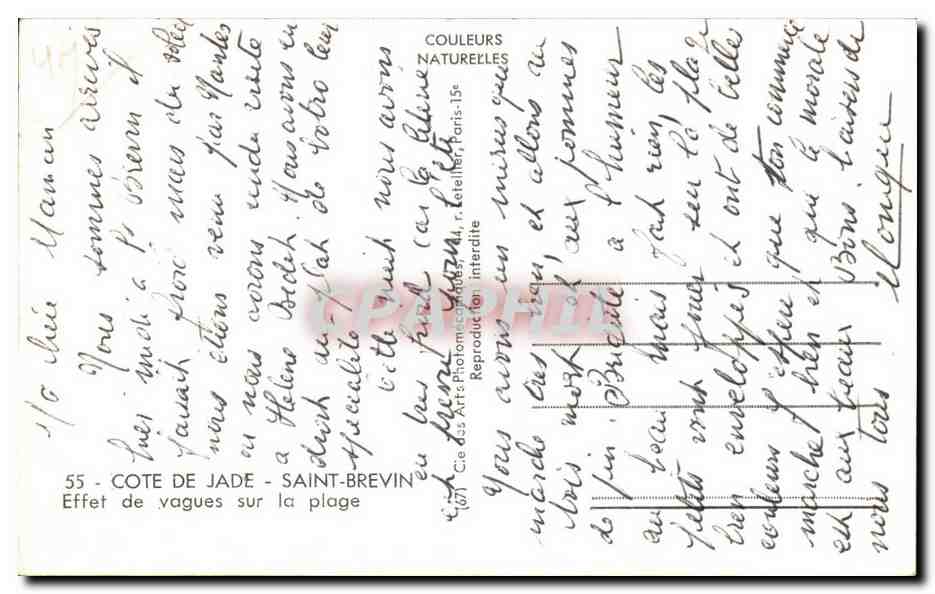 COULEURS
NATURELLES
Ma chère Maman
Nous sommes arrivés
hier midi à St Brevin il
faisait froid mais du soleil
nous étions venu par Nantes
et nous avons rendu visite
à Hélène Nous avons eu
droit au plat de votre leur
spécialité
cette nuit nous avons
eu pas froid car la
est
Nous avons un mieux que
marche très bien, et allons au
bois mort et aux pommes
de pin. Brigitte à l'humeur
au beau mais fait rien, les
petits vont jouer sur la plage
bien enveloppés et ont de belles
couleurs J'espère que ton commerce
marche bien et que le morale
est aux beau Bons baisers de
nous tous Monique
55 - COTE DE JADE - SAINT-BREVIN
Effet de vagues sur la plage
(67) Cie des Arts Photomécaniques, 44, r. Letellier, Paris-15e
Reproduction interdite
CPAPHIL